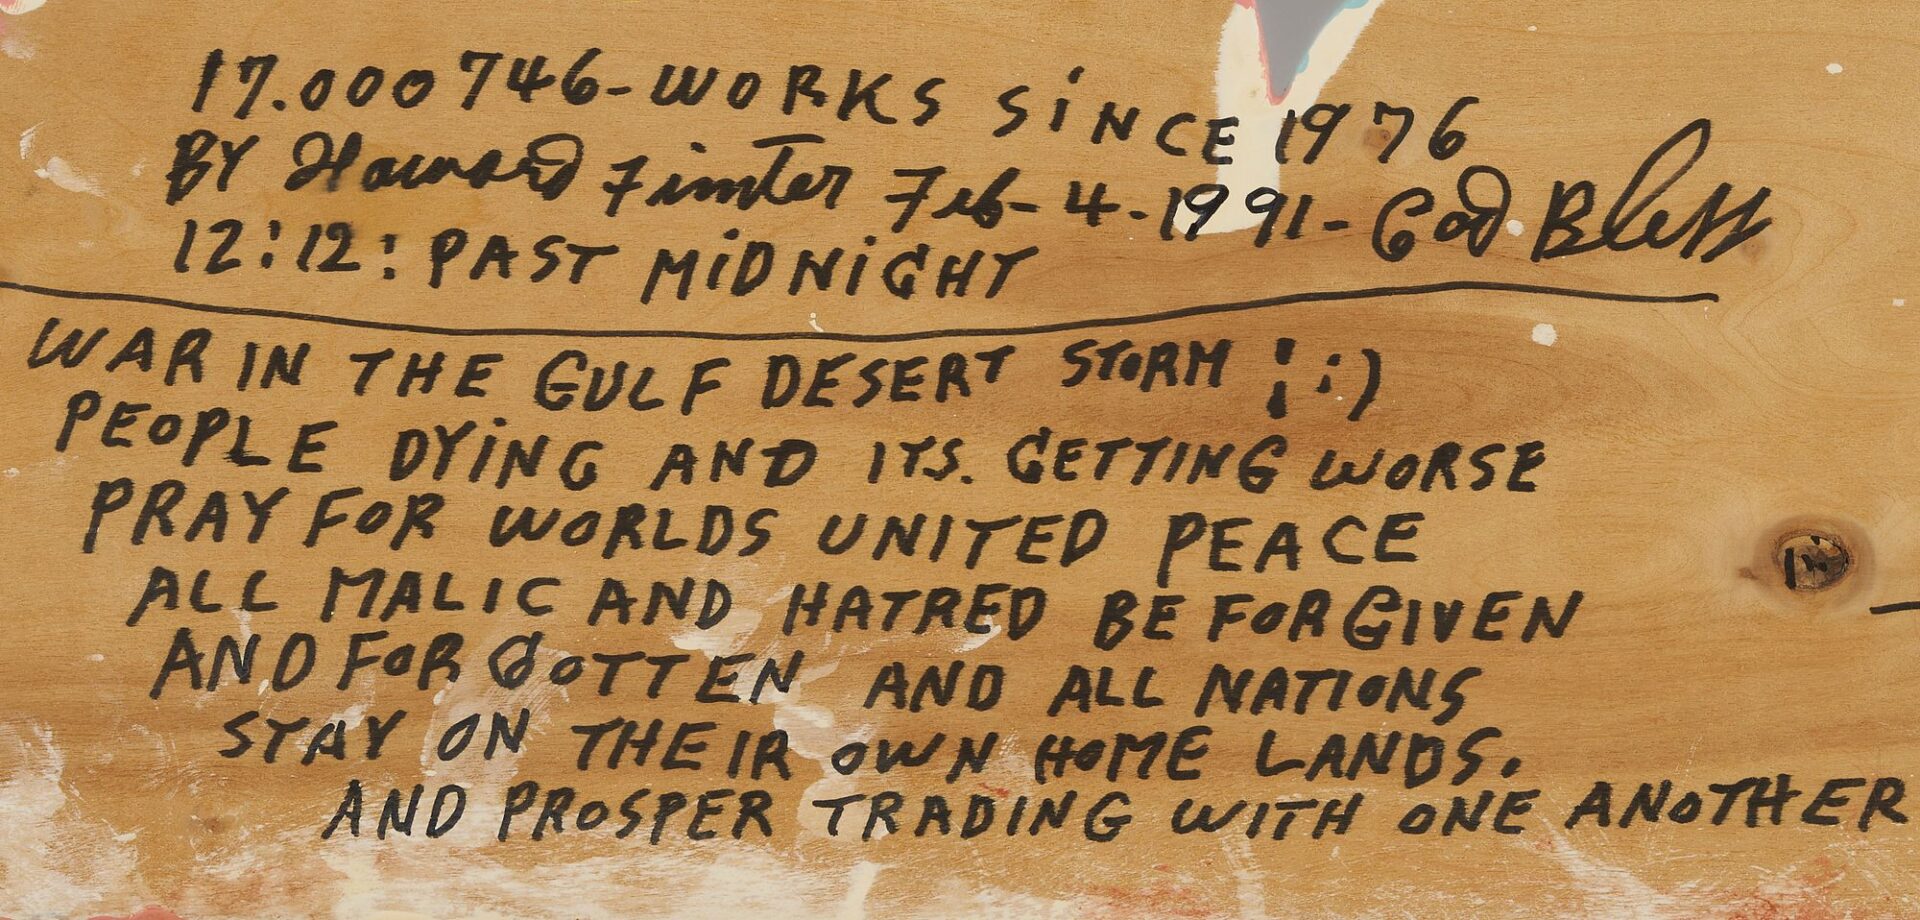 17.000746-WORKS SINCE 1976
BY Howard Finster Feb-4-1991-God Bless
12:12: PAST MIDNIGHT
WAR IN THE GULF DESERT STORM ! :)
PEOPLE DYING AND ITS. GETTING WORSE
PRAY FOR WORLDS UNITED PEACE
ALL MALIC AND HATRED BE FORGIVEN
AND FORGOTTEN AND ALL NATIONS
STAY ON THEIR OWN HOME LANDS.
AND PROSPER TRADING WITH ONE ANOTHER